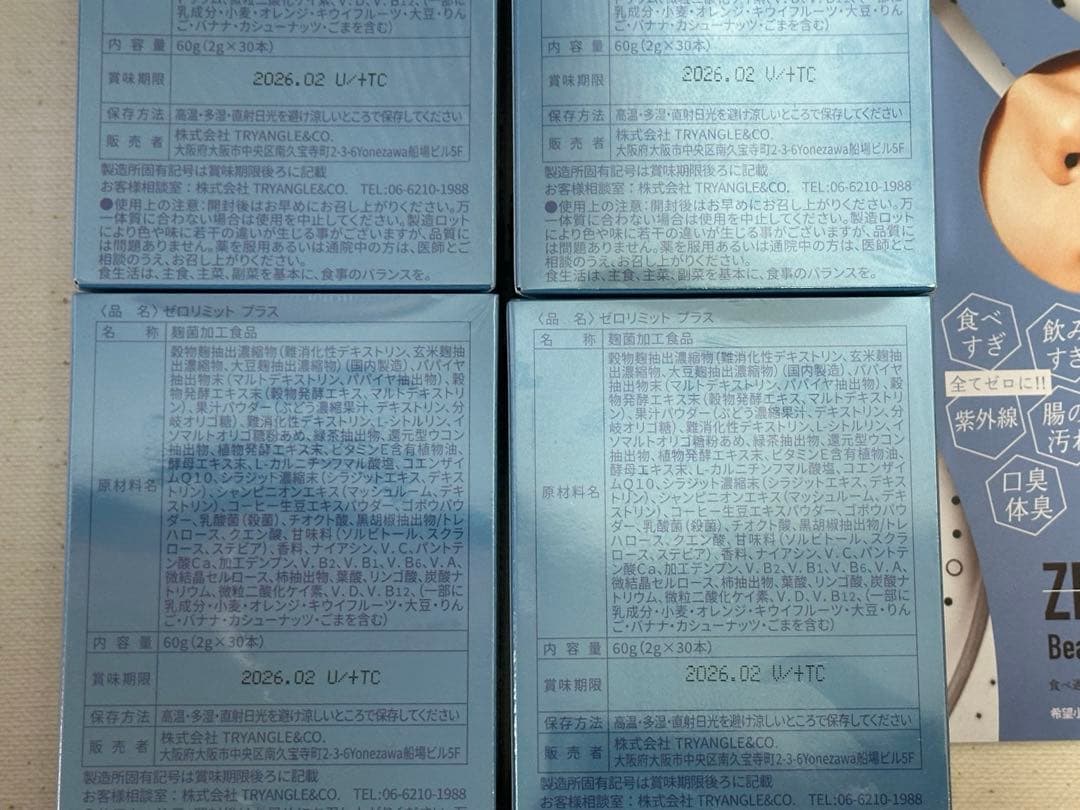 乳成分・小麦・オレンジ・キウイフルーツ・大豆・りん
ご・バナナ・カシューナッツ・ごまを含む)
内容量 60g(2g×30本)
賞味期限 2026.02 U/+TC
保存方法 高温・多湿・直射日光を避け涼しいところで保存してください
販売者 株式会社 TRYANGLE&CO.
大阪府大阪市中央区南久宝寺町2-3-6Yonezawa船場ビル5F
製造所固有記号は賞味期限後ろに記載
お客様相談室:株式会社 TRYANGLE&CO. TEL:06-6210-1988
●使用上の注意:開封後はお早めにお召し上がりください。万
一体質に合わない場合は使用を中止してください。製造ロット
により色や味に若干の違いが生じる事がございますが、品質に
は問題ありません。薬を服用あるいは通院中の方は、医師とご
相談のうえ、お召し上がりください。
食生活は、主食、主菜、副菜を基本に、食事のバランスを。
乳成分・小麦・オレンジ・キウイフルーツ・大豆・りん
ご・バナナ・カシューナッツ・ごまを含む)
内容量 60g(2g×30本)
賞味期限 2026.02 U/+TC
保存方法 高温・多湿・直射日光を避け涼しいところで保存してください
販売者 株式会社 TRYANGLE&CO.
大阪府大阪市中央区南久宝寺町2-3-6Yonezawa船場ビル5F
製造所固有記号は賞味期限後ろに記載
お客様相談室:株式会社 TRYANGLE&CO. TEL:06-6210-1988
●使用上の注意:開封後はお早めにお召し上がりください。万
一体質に合わない場合は使用を中止してください。製造ロット
により色や味に若干の違いが生じる事がございますが、品質に
は問題ありません。薬を服用あるいは通院中の方は、医師とご
相談のうえ、お召し上がりください。
食生活は、主食、主菜、副菜を基本に、食事のバランスを。
〈品 名〉ゼロリミット プラス
名 称 麹菌加工食品
原材料名 穀物麹抽出濃縮物(難消化性デキストリン、玄米麹抽
出濃縮物、大豆麹抽出濃縮物)(国内製造)、パパイヤ
抽出物末(マルトデキストリン、パパイヤ抽出物)、穀
物発酵エキス末(穀物発酵エキス、マルトデキストリ
ン)、果汁パウダー(ぶどう濃縮果汁、デキストリン、分
岐オリゴ糖)、難消化性デキストリン、L-シトルリン、イ
ソマルトオリゴ糖粉あめ、緑茶抽出物、還元型ウコン
抽出物、植物発酵エキス末、ビタミンE含有植物油、
酵母エキス末、L-カルニチンフマル酸塩、コエンザイ
ムQ10、シラジット濃縮末(シラジットエキス、デキス
トリン)、シャンピニオンエキス(マッシュルーム、デキス
トリン)、コーヒー生豆エキスパウダー、ゴボウパウ
ダー、乳酸菌(殺菌)、チオクト酸、黒胡椒抽出物/トレ
ハロース、クエン酸、甘味料(ソルビトール、スクラ
ロース、ステビア)、香料、ナイアシン、V.C、パントテ
ン酸Ca、加工デンプン、V.B2、V.B1、V.B6、V.A、
微結晶セルロース、柿抽出物、葉酸、リンゴ酸、炭酸ナ
トリウム、微粒二酸化ケイ素、V.D、V.B12、(一部に
乳成分・小麦・オレンジ・キウイフルーツ・大豆・りん
ご・バナナ・カシューナッツ・ごまを含む)
内容量 60g(2g×30本)
賞味期限 2026.02 U/+TC
保存方法 高温・多湿・直射日光を避け涼しいところで保存してください
販売者 株式会社 TRYANGLE&CO.
大阪府大阪市中央区南久宝寺町2-3-6Yonezawa船場ビル5F
製造所固有記号は賞味期限後ろに記載
お客様相談室:株式会社 TRYANGLE&CO. TEL:06-6210-1988
〈品 名〉ゼロリミット プラス
名 称 麹菌加工食品
原材料名 穀物麹抽出濃縮物(難消化性デキストリン、玄米麹抽
出濃縮物、大豆麹抽出濃縮物)(国内製造)、パパイヤ
抽出物末(マルトデキストリン、パパイヤ抽出物)、穀
物発酵エキス末(穀物発酵エキス、マルトデキストリ
ン)、果汁パウダー(ぶどう濃縮果汁、デキストリン、分
岐オリゴ糖)、難消化性デキストリン、L-シトルリン、イ
ソマルトオリゴ糖粉あめ、緑茶抽出物、還元型ウコン
抽出物、植物発酵エキス末、ビタミンE含有植物油、
酵母エキス末、L-カルニチンフマル酸塩、コエンザイ
ムQ10、シラジット濃縮末(シラジットエキス、デキス
トリン)、シャンピニオンエキス(マッシュルーム、デキス
トリン)、コーヒー生豆エキスパウダー、ゴボウパウ
ダー、乳酸菌(殺菌)、チオクト酸、黒胡椒抽出物/トレ
ハロース、クエン酸、甘味料(ソルビトール、スクラ
ロース、ステビア)、香料、ナイアシン、V.C、パントテ
ン酸Ca、加工デンプン、V.B2、V.B1、V.B6、V.A、
微結晶セルロース、柿抽出物、葉酸、リンゴ酸、炭酸ナ
トリウム、微粒二酸化ケイ素、V.D、V.B12、(一部に
乳成分・小麦・オレンジ・キウイフルーツ・大豆・りん
ご・バナナ・カシューナッツ・ごまを含む)
内容量 60g(2g×30本)
賞味期限 2026.02 U/+TC
保存方法 高温・多湿・直射日光を避け涼しいところで保存してください
販売者 株式会社 TRYANGLE&CO.
大阪府大阪市中央区南久宝寺町2-3-6Yonezawa船場ビル5F
製造所固有記号は賞味期限後ろに記載
お客様相談室:株式会社 TRYANGLE&CO. TEL:06-6210-1988
食べ
すぎ
飲み
すぎ
全てゼロに!!
紫外線
腸の
汚れ
口臭
体臭
Bea
希望小